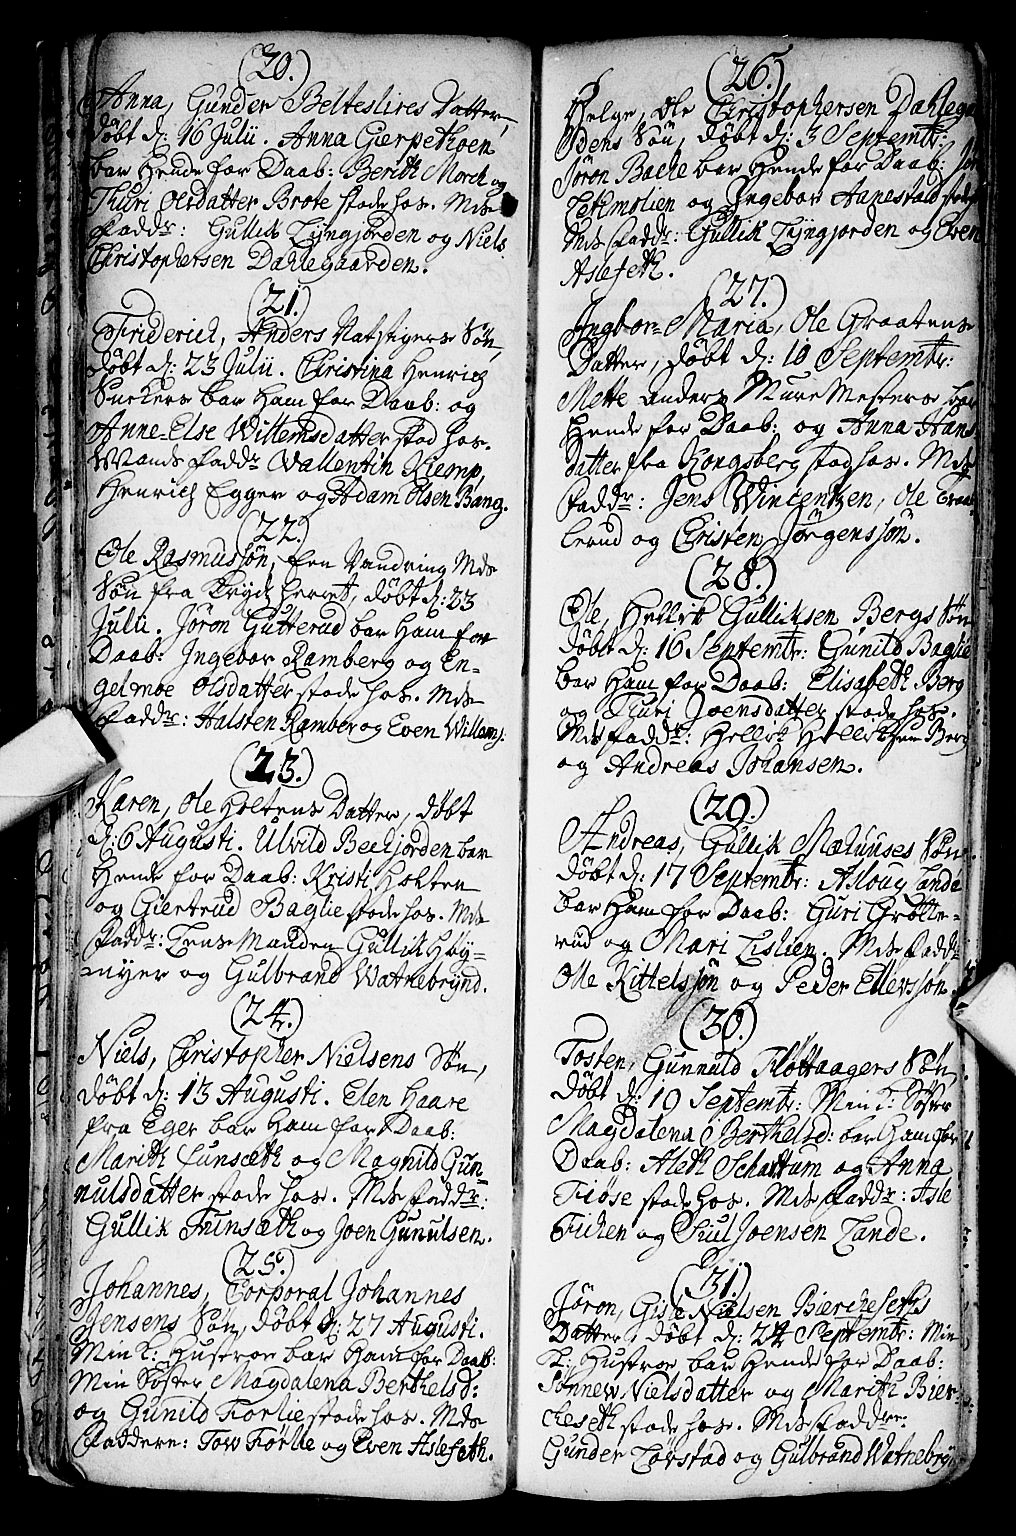 (20.)
Anna, Gunder Beltesliies Datter,
døbt d: 16 Julii. Anna Gierpethoen
bar Hende for Daab: Berith Morch og
Thuri Olsdatter Brote stode hos. Mds
Faddr: Gullik Lyngjorden og Niels
Christophersen Dahlegaarden.
(21.)
Friderich, Anders Natstigers Søn,
døbt d: 23 Julii. Christina Henrich
bar Ham for Daab: og
Anne-Else Willemsdatter stod hos.
Mands Faddr Vallentin Kiemp,
Henrich Egger og Adam Olsen Bang.
(22.)
Ole Rasmussøn, een Vandring Mds
Søn fra herret, døbt d: 23
Julii. Jøron Gutterud bar Ham for
Daab: Ingebor Ramberg og En-
gelmoe Olsdatter stode hos. Mds
Faddr: Halsten Ramber og Even Willomsj.
(23.)
Karen, Ole Holtens Datter, døbt
d: 6 Augusti. Ulvild Bechjorden bar
Hende for Daab: Kristi Holten
og Giertrud Baglie stode hos. Mds
Faddr: Lensmanden Gullik Høy-
myer og Gulbrand Watnebrynd.
(24.)
Niels, Christopher Nielsens Søn,
døbt d: 13 Augusti. Elen Haare
fra Eger bar Ham for Daab:
Marith Funsæth og Magnild Gun-
nulsdatter stode hos. Mds Faddr:
Gullik Funsæth og Joen Gunulsen.
(25.)
Johannes, Corporal Johannes
Jensens Søn, døbt d: 27 Augusti.
Min K: Hustroe bar Ham for Daab:
Min Søster Magdalena Berthelsd:
og Gunild Forlie stode hos. Mds
Faddere: Tow Førlie og Even Aslefeth.
(26.)
Helge, Ole Christophersen Dahlegaa
dens Søn, døbt d: 3 Septembr:
Jøron Bache bar Hende for Daab:
og Ingebor Hanestad stode
Mds Faddr: Gullik Lyngjorden og Even
Aslefeth.
(27.)
Ingbor-Maria, Ole Graatens
Datter, døbt d: 10 Septembr:
Mette Anders Mure Mesters bar
Hende for Daab: og Anna Hans
datter fra Kongsberg stod hos. Mds
Faddr: Jens Wincentzen, Ole Graa-
berud og Christen Jørgenssøn.
(28.)
Ole, Hellik Gulliksen Bergs Søn
døbt d: 16 Septembr: Gunild Baglie
bar Ham for Daab: Elisabeth Berg
og Thuri Joensdatter stode hos.
Mds Faddr: Hellik Helliksen Berg
og Andreas Johansen.
(29.)
Andreas, Gullik Mælumses Søn,
døbt d: 17 Septembr: Asloug Lande
bar Ham for Daab: Guri Grølle-
rud og Mari Lislien. Mds Faddr
Ole Kittelssøn og Peder Ellerssøn.
(30.)
Tosten, Gunnuld Flottaagers Søn,
døbt d: 19 Septembr: Min K: Søster
Magdalena Berthelsd: bar Ham for
Daab: Aleth Schattum og Anna
Tiøse stode hos. Mds Faddr: Asle
Fichen og Siul Joensen Lande.
(31.)
Jøron, Gisle Nielsen Bierchesethis
Datter, døbt d: 24 Septembr: Min
K: Hustroe bar Hende for Daab:
Sønnew Nielsdatter og Marith Bier-
cheseth stode hos. Mds Faddre:
Gunder Lørstad og Gulbrand Watnebryn